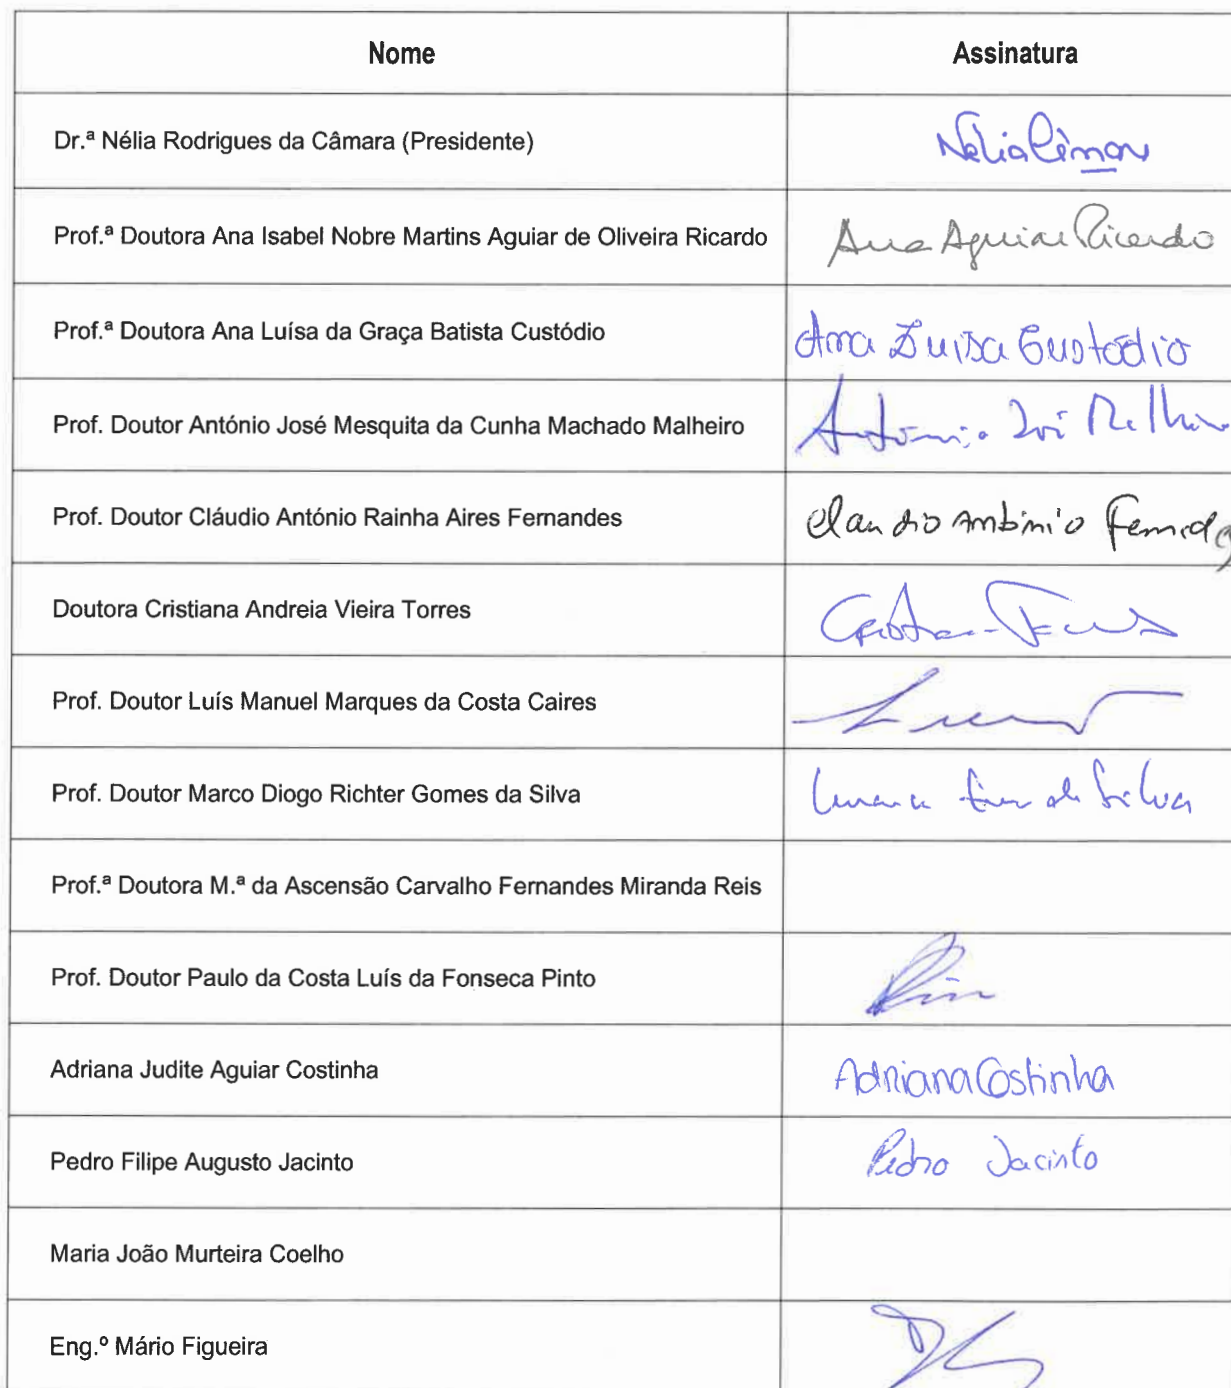 Nome Assinatura
Dr.ª Nélia Rodrigues da Câmara (Presidente) Nélia Câmara
Prof.ª Doutora Ana Isabel Nobre Martins Aguiar de Oliveira Ricardo Ana Aguiar Ricardo
Prof.ª Doutora Ana Luísa da Graça Batista Custódio Ana Luísa Custódio
Prof. Doutor António José Mesquita da Cunha Machado Malheiro António José Malheiro
Prof. Doutor Cláudio António Rainha Aires Fernandes Claudio António Fernandes
Doutora Cristiana Andreia Vieira Torres
Prof. Doutor Luís Manuel Marques da Costa Caires
Prof. Doutor Marco Diogo Richter Gomes da Silva da Silva
Prof.ª Doutora M.ª da Ascensão Carvalho Fernandes Miranda Reis
Prof. Doutor Paulo da Costa Luís da Fonseca Pinto
Adriana Judite Aguiar Costinha Adriana Costinha
Pedro Filipe Augusto Jacinto Pedro Jacinto
Maria João Murteira Coelho
Eng.º Mário Figueira